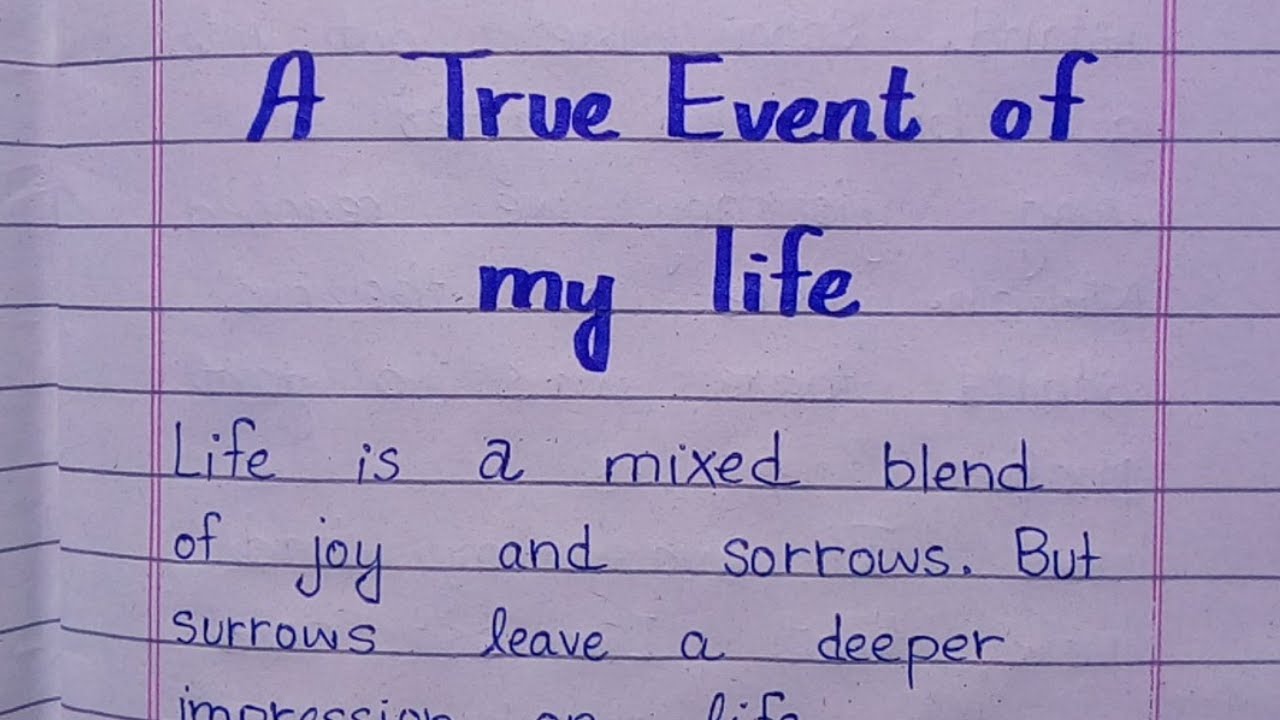 A True Event of
my life
Life is a mixed blend
of joy and sorrows. But
surrows leave a deeper
impression on life